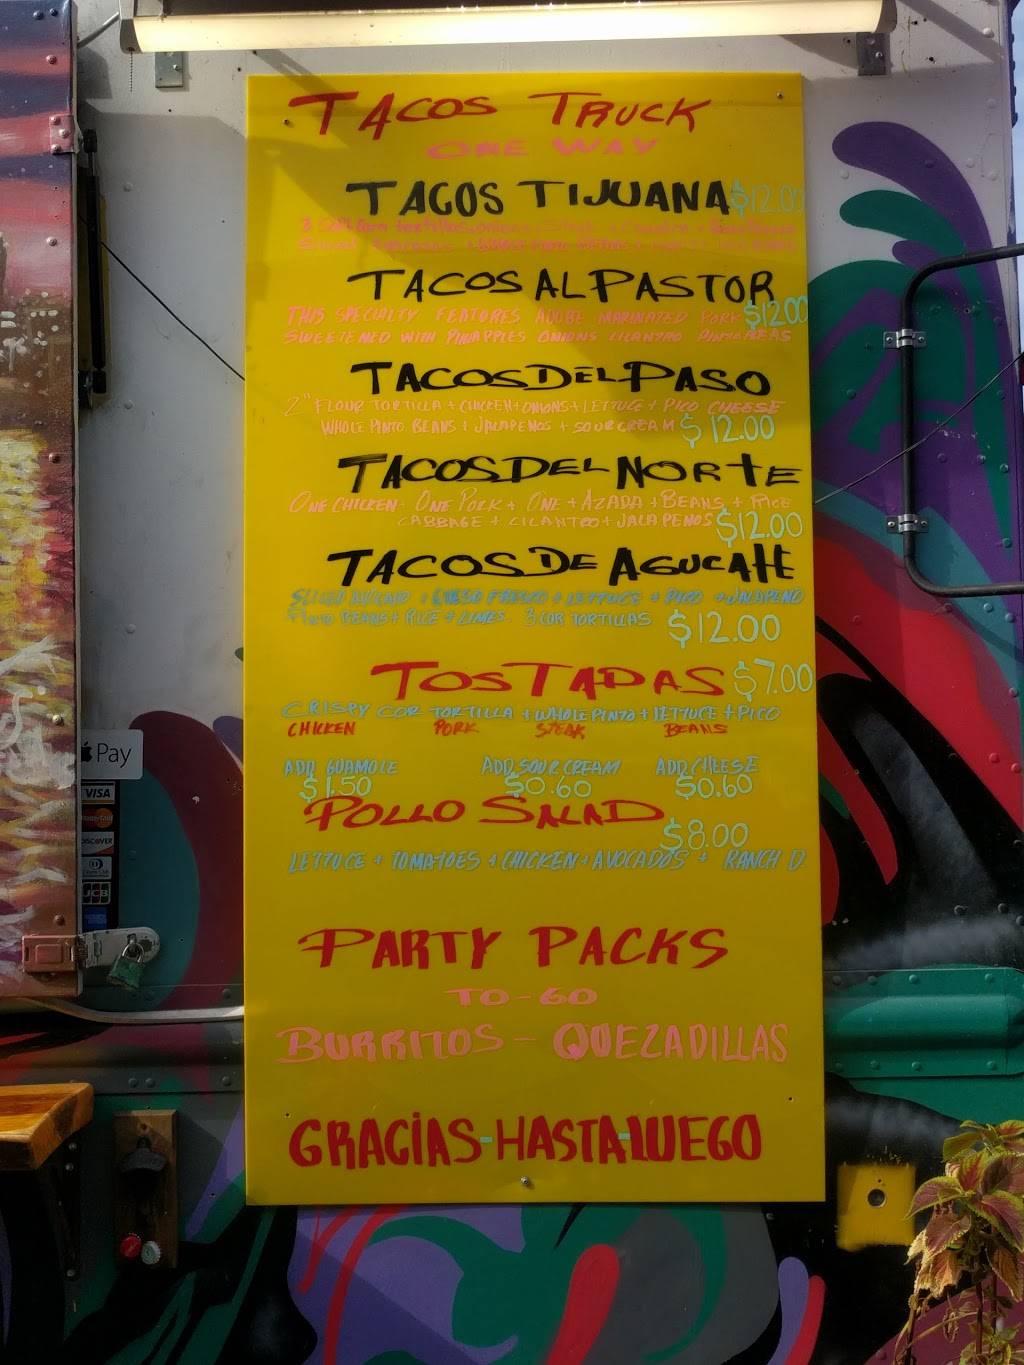 TACOS TRUCK
ONE WAY
TACOS TIJUANA $12.00
3 Soft Corn tortillas
TACOS AL PASTOR
THIS SPECIALTY FEATURES ADOBE MARINATED PORK $12.00
SWEETENED WITH PINAPPLES ONIONS CILANTRO PINTO BEAS
TACOS DEL PASO
2" FLOUR TORTILLA + CHICKEN + ONIONS + LETTUCE + PICO CHEESE
WHOLE PINTO BEANS + JALAPENOS + SOUR CREAM $12.00
TACOS DEL NORTE
ONE CHICKEN - ONE PORK + ONE + AZADA + BEANS + RICE
CABBAGE + CILANTRO + JALAPENOS $12.00
TACOS DE AGUCATE
SLICED + QUESO FRESCO + LETTUCE + PICO + JALAPENO
PINTO BEANS + RICE + LIMES. 3 COR TORTILLAS $12.00
TOSTADAS $7.00
CRISPY COR TORTILLA + WHOLE PINTO + LETTUCE + PICO
CHICKEN PORK STEAK BEANS
ADD GUAMOLE ADD SOUR CREAM ADD CHEESE
$1.50 $0.60 $0.60
POLLO SALAD
$8.00
LETTUCE + TOMATOES + CHICKEN + AVOCADOS + RANCH D
PARTY PACKS
TO-GO
BURRITOS - QUEZADILLAS
GRACIAS-HASTA-LUEGO
Pay
VISA
MasterCard
DISCOVER
JCB